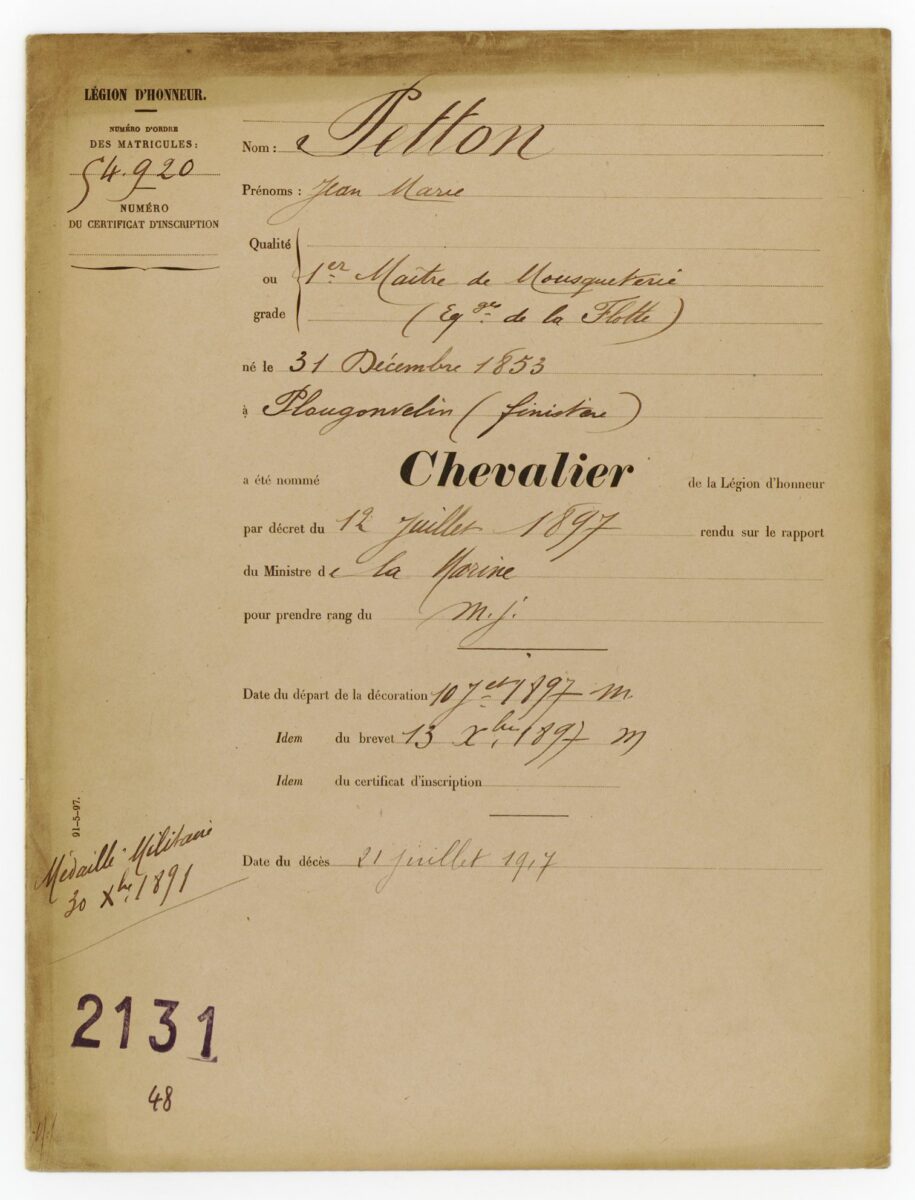 LÉGION D'HONNEUR.
NUMÉRO D'ORDRE
DES MATRICULES:
54.920
NUMÉRO
DU CERTIFICAT D'INSCRIPTION
Nom : Petton
Prénoms : Jean Marie
Qualité
ou
grade
1er Maître de Mousqueterie
(Eqges de la Flotte)
né le 31 Décembre 1853
à Plougonvelin (finistère)
a été nommé Chevalier de la Légion d'honneur
par décret du 12 Juillet 1897 rendu sur le rapport
du Ministre de la Marine
pour prendre rang du m. j.
Date du départ de la décoration 10 Jet 1897 m
Idem du brevet 13 Xbre 1897 m
Idem du certificat d'inscription
Date du décès 21 juillet 1917
91-5-97.
Médaille Militaire
30 Xbre 1891
2131
48